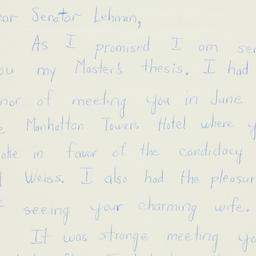 ear Senator Lehman,
As I promised I am se
ou my Master's thesis. I had
nor of meeting you in June
e Manhattan Towers Hotel where y
oke in favor of the candidacy
Weiss. I also had the pleasur
seeing your charming wife.
It was strange meeting yo